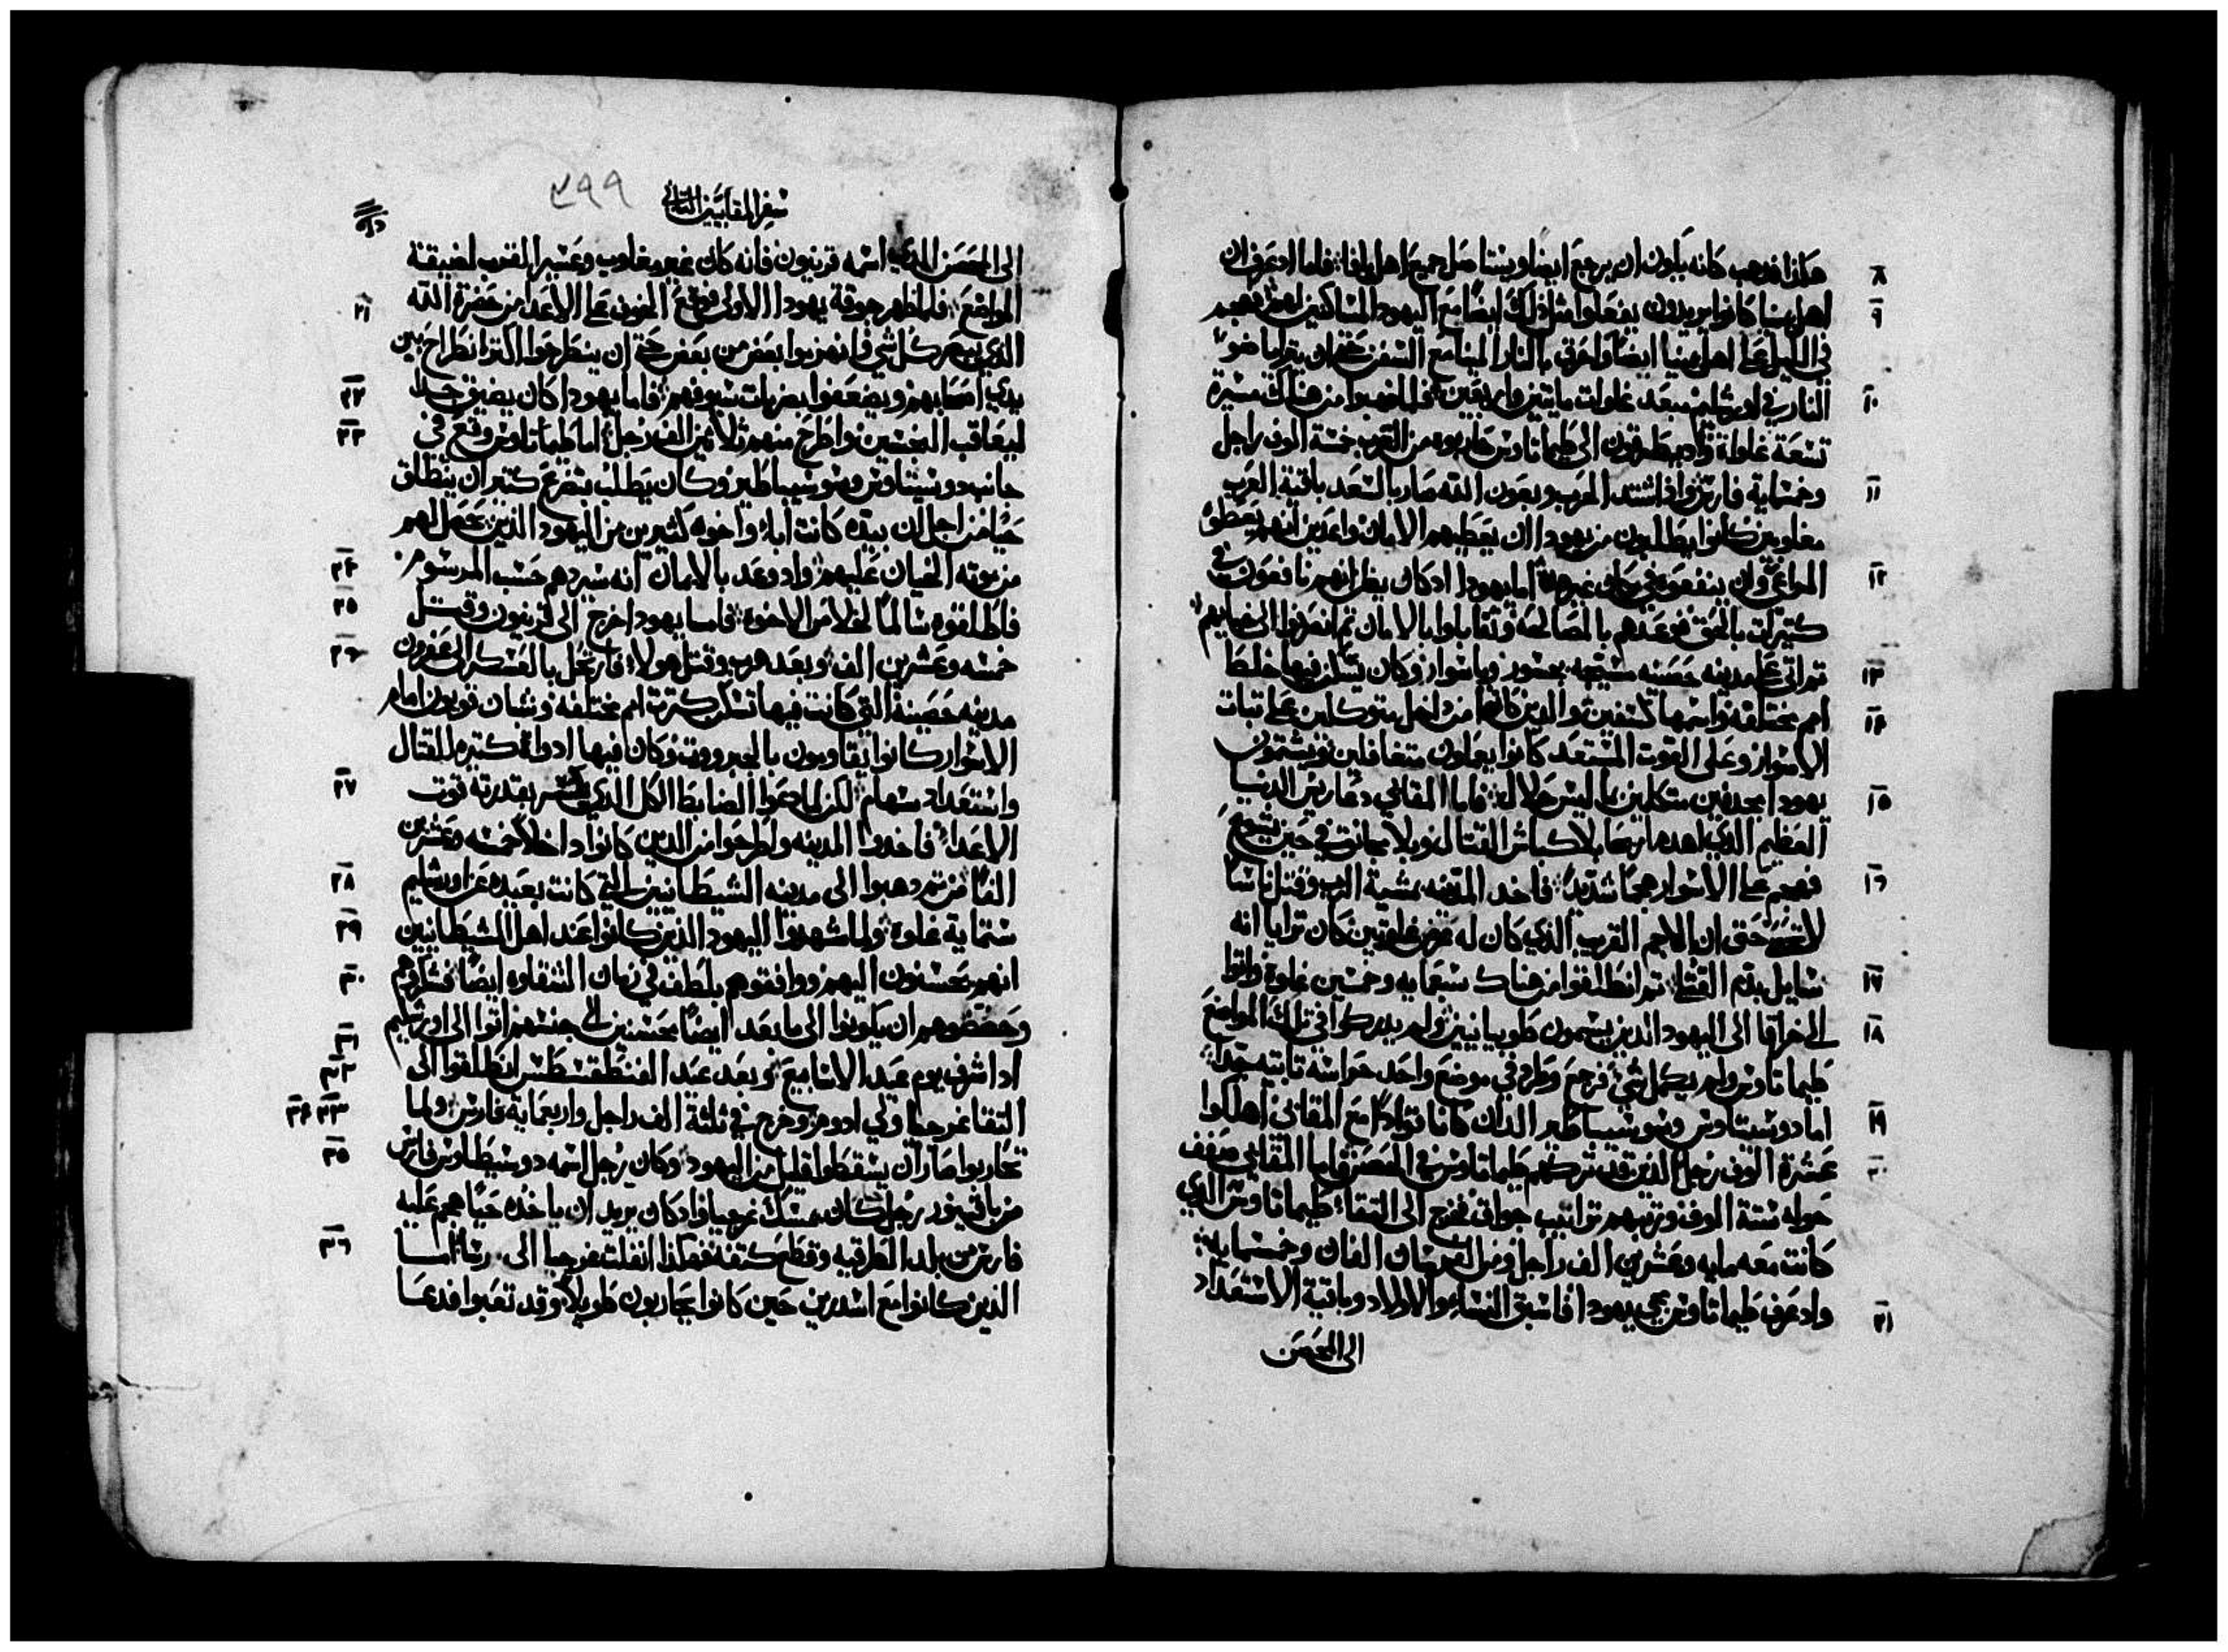 ٨ هكذا فدهب كانه يكون ان يرجع ايضا ويستاصل جميع اهل يافا فلما اد عرف ان
٩ اهل يمنيا كانوا يريدون يفعلوا مثل ذلك ايضًا مع اليهود الساكنين لهم فهجم
في الليل على اهل يمنيا ايضًا واحرق بالنار المينا مع السفن حتى ان يترايا ضو
١٠ النار في اورشليم ببعد غلوات مايتين واربعين فلما دهبوا من هناك مسيرة
تسعة غلوات واد يطرقون الى طيماتاوس حاربوه من العرب خمسة الوف راجل
١١ وخمسماية فارس واذا اشتد الحرب وبعون الله صار بالسعد باقية العرب
مغلوبين كانوا يطلبون من يهودا ان يعطيهم الامان واعدين انهم يعطون
١٢ المواعي وان ينفعوه في غيرها اما يهودا اد كان يظن انهم نافعون في
كتيرات بالحق فوعدهم بالمصالحه وتقابلوا بالامان تم انصرفوا الى خيامهم
١٣ تم اتى على مدينه حصينه مشيده بجسور وباسوار وكان يسكن فيها خلطا
١٤ امم مختلفه واسمها كسفين والدين كانوا من داخل متوكلين على تبات
الاسوار وعلى القوت المستعد كانوا يعملون متغافلين ويشتمون
١٥ يهودا مجدفين متكلمين ما ليس حلال فاما المقابي دعا ريس الدنيا
العظيم الدي اهدم اريحا بلا كباش القتال وبلا مجانق في حين يشوع
١٦ فهجم على الاسوار هجمًا شديدًا فاخد المدينه بمشية الرب وقتل ناسًا
لا تحصى حتى ان الاجم القريب الذي كان له عرض غلوتين كان ترايا انه
١٧ سايل بدم القتلى تم انطلقوا من هناك سبعمايه وخمسين غلوة واتوا
١٨ الى خراقا الى اليهود الذين يسمون طوبيانيين ولم يدركوا في تلك المواضع
طيماتاوس ولم يكمل شي فرجع وطرد في موضع واحد حراسه تابته جدًا
١٩ اما دوسيتاوس وسوسيباطير الدان كانا قوادًا مع المقابي اهلكوا
٢٠ عشرة الوف رجل الذين قد تركهم طيماتاوس في الحصن فاما المقابي صفف
حوله ستة الوف ورتبهم تراتيب جواق فخرج الى التقاء طيماتاوس الدي
كانت معه مايه وعشرين الف راجل ومن الفرسان الفان وخمسمايه
٢١ واد عرف طيماتاوس مجي يهودا فاسبق النساء والاولاد وباقية الاستعداد
الى الحصن
سفر المقابيين التاني
٣٩٩
الى الحصن الدي اسمه قرنيون فانه كان غير مغلوب وعسير المقترب لضيقة
٢٢ المواضع فلما ظهر جوقة يهودا الاولى فوقع الخوف على الاعدا من حضرة الله
الدي يبصر كل شي فانهزموا بعض من بعض حتى ان ينطرحوا اكتر انطراح من
٢٣ يدي اصحابهم ويضعفوا بضربات سيوفهم فاما يهودا كان يضيق جدًا
٢٤ ليعاقب النجسين واطرح منهم ثلاثين الف رجل اما طيماتاوس وقع في
جانب دوسيتاوس وسوسيباطير وكان يطلب بتضرع كتير ان ينطلق
حيًا من اجل ان بيده كانت اباء واخوه كثيرين من اليهود الذين يحصل لهم
من موته الخيبان عليهم واد وعد بالايمان انه سيردهم حسب المرسوم
٢٥ فاطلقوه سالمًا لخلاص الاخوه فاما يهودا خرج الى قرنيون وقتل
٢٦ خمسه وعشرين الف وبعد هرب وقتل هولا فارتحل بالعسكر الى عفرون
مدينه حصينة التي كانت فيها تسكن كترت امم مختلفه وشبان قويون امام
الاسوار كانوا يقاومون بالجبروت وكان فيها ادواة كتيره للقتال
٢٧ واستعداد سهام لكن لما دعوا الضابط الكل الدي يكسر بقدرته قوت
الاعداء فاخدوا المدينه واطرحوا من الدين كانوا داخلاً خمسه وعشرين
٢٨ الفًا من تم دهبوا الى مدينه الشيطانيين التي كانت بعيده عن اورشليم
٢٩ ستماية غلوة ولما شهدوا اليهود الذين كانوا عند اهل الشيطانيين
٣٠ انهم يحسنون اليهم ووافقوهم بلطف في زمان الشقاوه ايضًا فشكروهم
وحضضوهم ان يكونوا الى ما بعد ايضًا محسنين الى جنسهم اتوا الى اورشليم
٣١ اد اشرف يوم عيد الاسابيع
٣٢ وبعد عيد الفنطقسطس انطلقوا الى
٣٣ ٣٤ التقا غرجيا والي ادوم وخرج في ثلثة الف راجل واربعماية فارس ولما
٣٥ تحاربوا صار ان يسقطوا قليل من اليهود وكان رجل اسمه دوسيطاوس فارس
من باقينور رجل كان يمسك غرجيا واد كان يريد ان ياخده حيًا هجم عليه
٣٦ فارس من بلد الطرقيه وقطع كتفه فهكذا انفلت غرجيا الى مرشا اما
الذين كانوا مع اسدرين حين كانوا يحاربون طويلاً وقد تعبوا فدعا